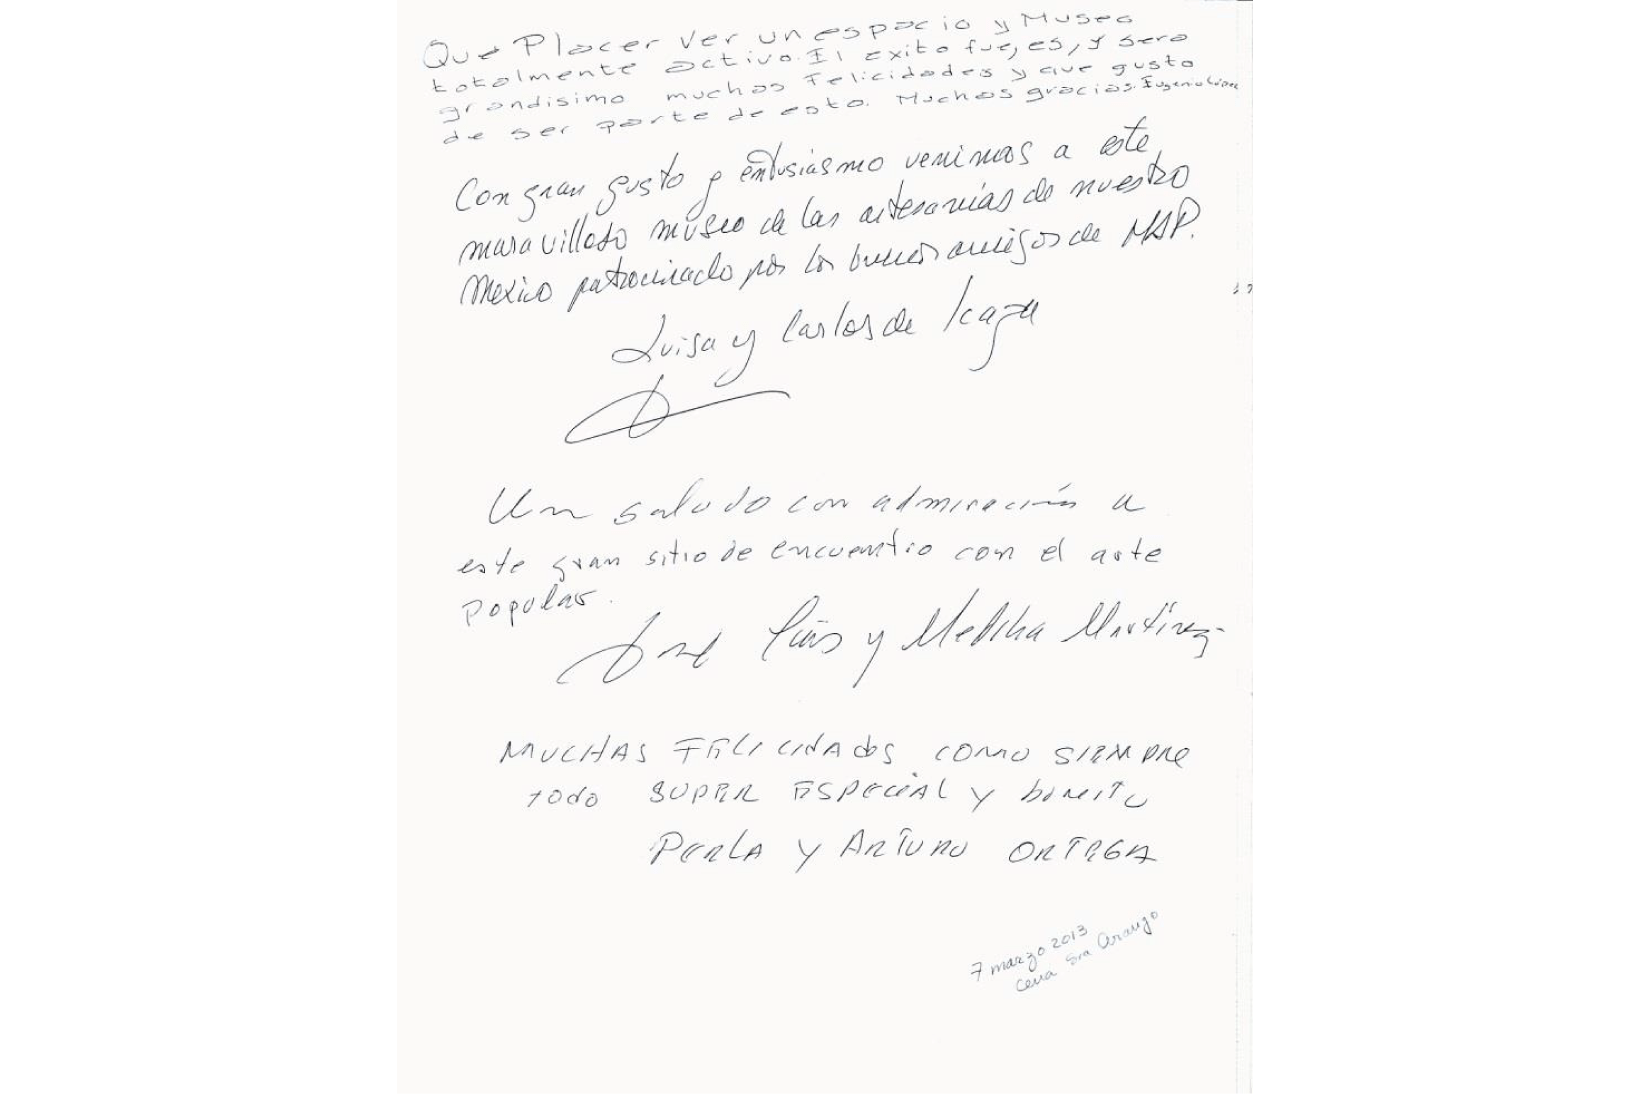 Que Placer ver un espacio y Museo
totalmente activo. El exito fue, es, y sera
grandisimo muchas Felicidades y que gusto
de ser parte de esto. Muchas gracias. Eugenio López
Con gran gusto y entusiasmo venimos a este
maravilloso museo de las artesanías de nuestro
Mexico patrocinado por los buenos amigos de MAP.
Luisa y Carlos de Icaza
Un saludo con admiración a
este gran sitio de encuentro con el arte
popular.
José Luis y Martínez
MUCHAS FELICIDADES COMO SIEMPRE
TODO SUPER ESPECIAL Y BONITO
PERLA Y ARTURO ORTEGA
7 marzo 2013
Cena Sra Araujo